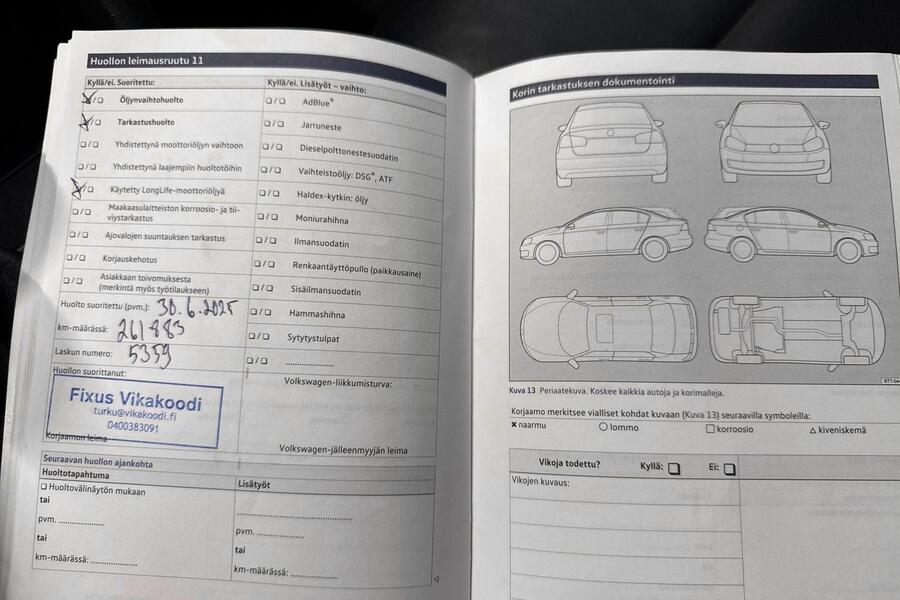 Huollon leimausruutu 11
Kyllä/ei. Suoritettu:
Öljynvaihtohuolto
Tarkastushuolto
Yhdistettynä moottoriöljyn vaihtoon
Yhdistettynä laajempiin huoltotöihin
Käytetty LongLife-moottoriöljyä
Maakaasulaitteiston korroosio- ja tii-
viystarkastus
Ajovalojen suuntauksen tarkastus
Korjauskehotus
Asiakkaan toivomuksesta
(merkintä myös työtilaukseen)
Huolto suoritettu (pvm.): 30.6.2025
km-määrässä: 261883
Laskun numero: 5359
Huollon suorittanut:
Fixus Vikakoodi
turku@vikakoodi.fi
0400383091
Korjaamon leima
Kyllä/ei. Lisätyöt – vaihto:
AdBlue®
Jarruneste
Dieselpolttonestesuodatin
Vaihteistoöljy: DSG®, ATF
Haldex-kytkin: öljy
Moniurahihna
Ilmansuodatin
Renkaantäyttöpullo (paikkausaine)
Sisäilmansuodatin
Hammashihna
Sytytystulpat
....................
Volkswagen-liikkumisturva:
Volkswagen-jälleenmyyjän leima
Seuraavan huollon ajankohta
Huoltotapahtuma
Huoltovälinäytön mukaan
tai
pvm. ...................
tai
km-määrässä: ...................
Lisätyöt
...............................................
pvm. ...................
tai
km-määrässä: ...................
Korin tarkastuksen dokumentointi
Kuva 13 Periaatekuva. Koskee kaikkia autoja ja korimalleja.
Korjaamo merkitsee vialliset kohdat kuvaan (Kuva 13) seuraavilla symboleilla:
naarmu lommo korroosio kiveniskemä
Vikoja todettu? Kyllä: Ei:
Vikojen kuvaus: